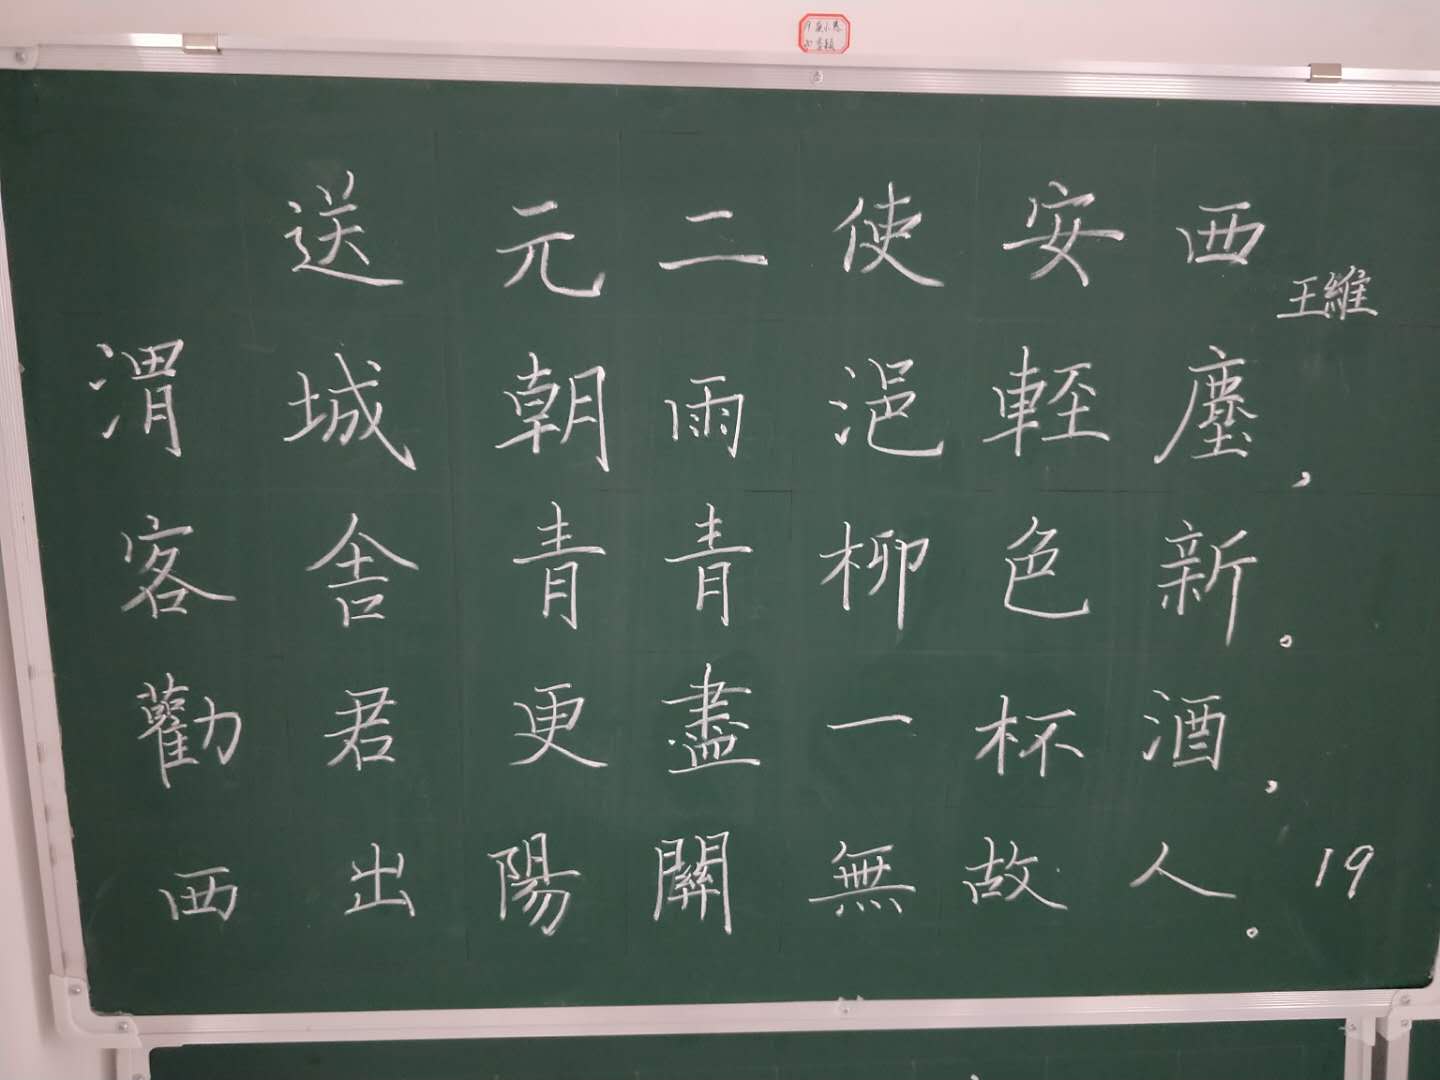 送元二使安西
王維
渭城朝雨浥輕塵,
客舍青青柳色新。
勸君更盡一杯酒,
西出陽關無故人。 19